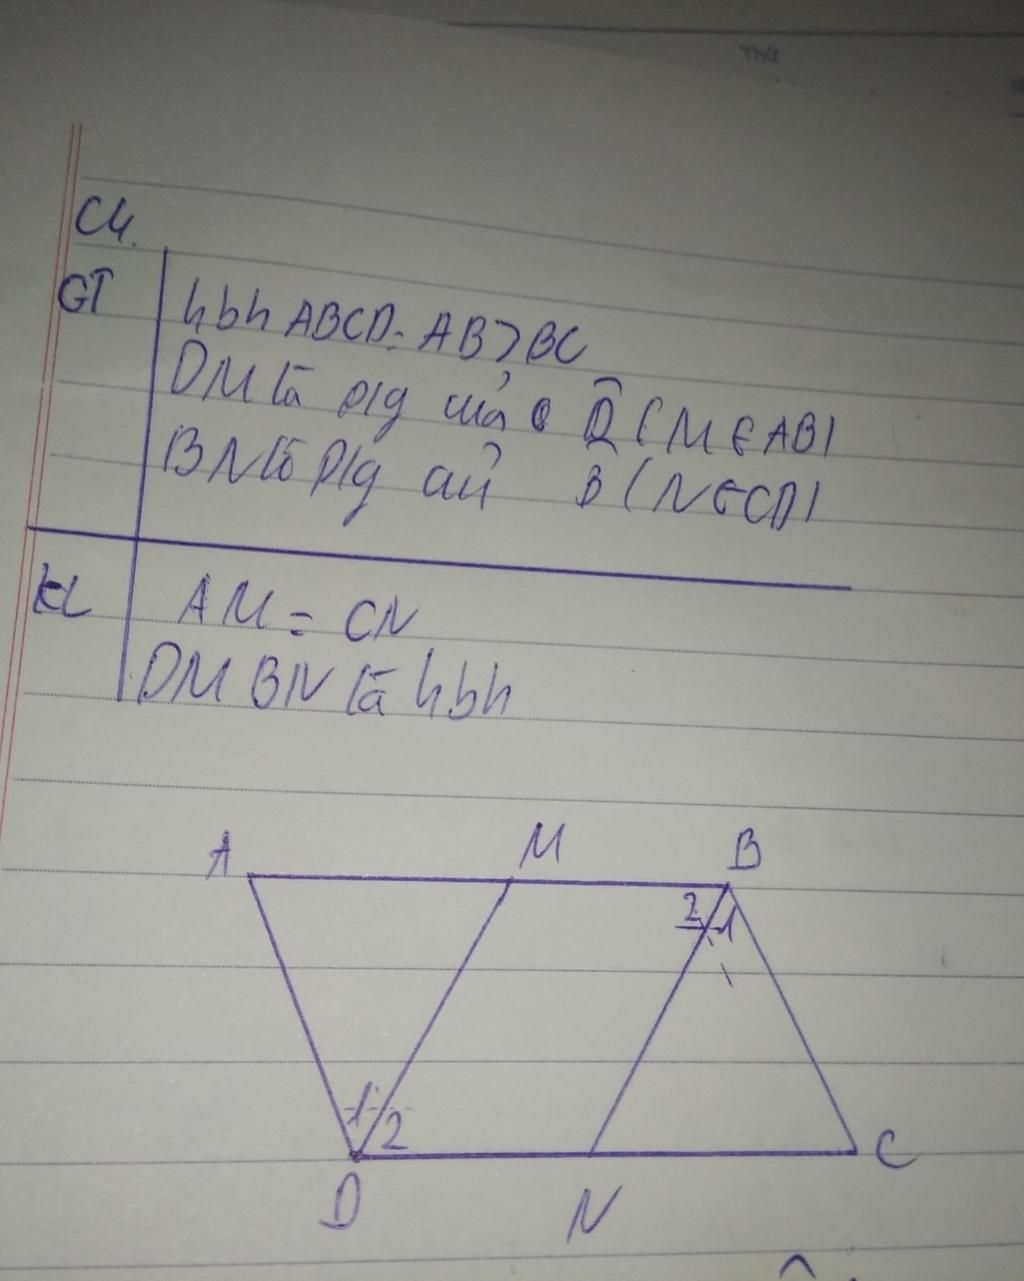 Thứ
C4.
GT
hbh ABCD: AB>BC
DM là p/g của D̂ (M∈AB)
BN là p/g củ B (N∈CD)
KL
AM = CN
DMBN là hbh
A M B
2 1
1 2
D N C